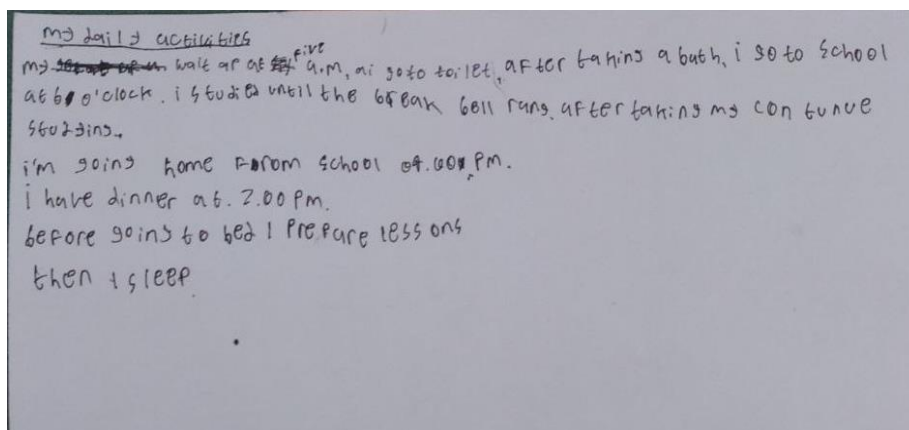 my daily activities
my wait ap at five a.m, ai go to toilet, after taking a bath, i go to school
at 6 o'clock. i studied untill the break bell rung. after taking my contunue
studying.
i'm going home from school 04.00 pm.
i have dinner at. 7.00 pm.
before going to bed i prepare lessons
then i sleep